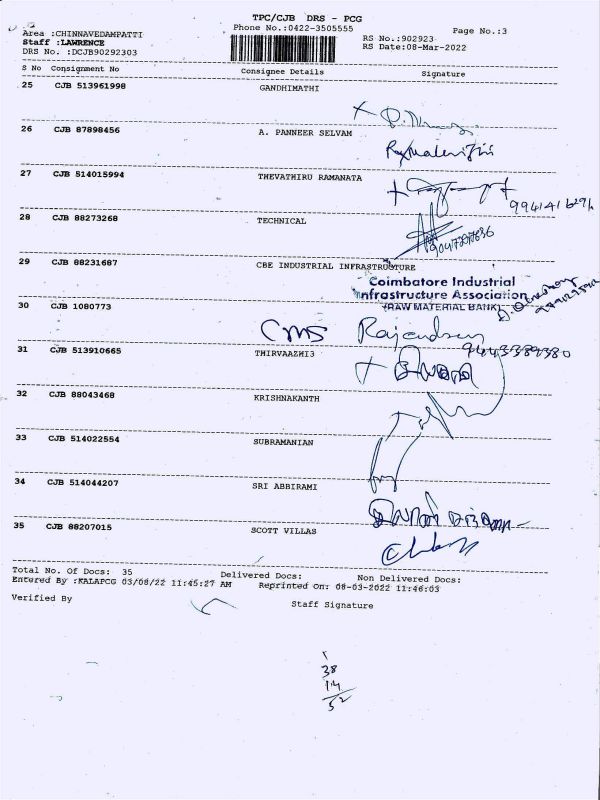 TPC/CJB DRS - PCG
Phone No.:0422-3505555
Page No.:3
Area :CHINNAVEDAMPATTI
Staff :LAWRENCE
DRS No. :DCJB90292303
RS No.:902923
RS Date:08-Mar-2022
S No Consignment No Consignee Details Signature
25 CJB 513961998 GANDHIMATHI
26 CJB 87898456 A. PANNEER SELVAM
27 CJB 514015994 THEVATHIRU RAMANATA
28 CJB 88273268 TECHNICAL
29 CJB 88231687 CBE INDUSTRIAL INFRASTRUCTURE
Coimbatore Industrial
Infrastructure Association
(RAW MATERIAL BANK)
30 CJB 1080773
CMS Rajendran
9443389380
31 CJB 513910665 THIRVAAZHI3
32 CJB 88043468 KRISHNAKANTH
33 CJB 514022554 SUBRAMANIAN
34 CJB 514044207 SRI ABBIRAMI
35 CJB 88207015 SCOTT VILLAS
Total No. Of Docs: 35 Delivered Docs: Non Delivered Docs:
Entured By :KALAPCG 03/08/22 11:45:27 AM Reprinted On: 08-03-2022 11:46:03
Verified By Staff Signature
38
14
52